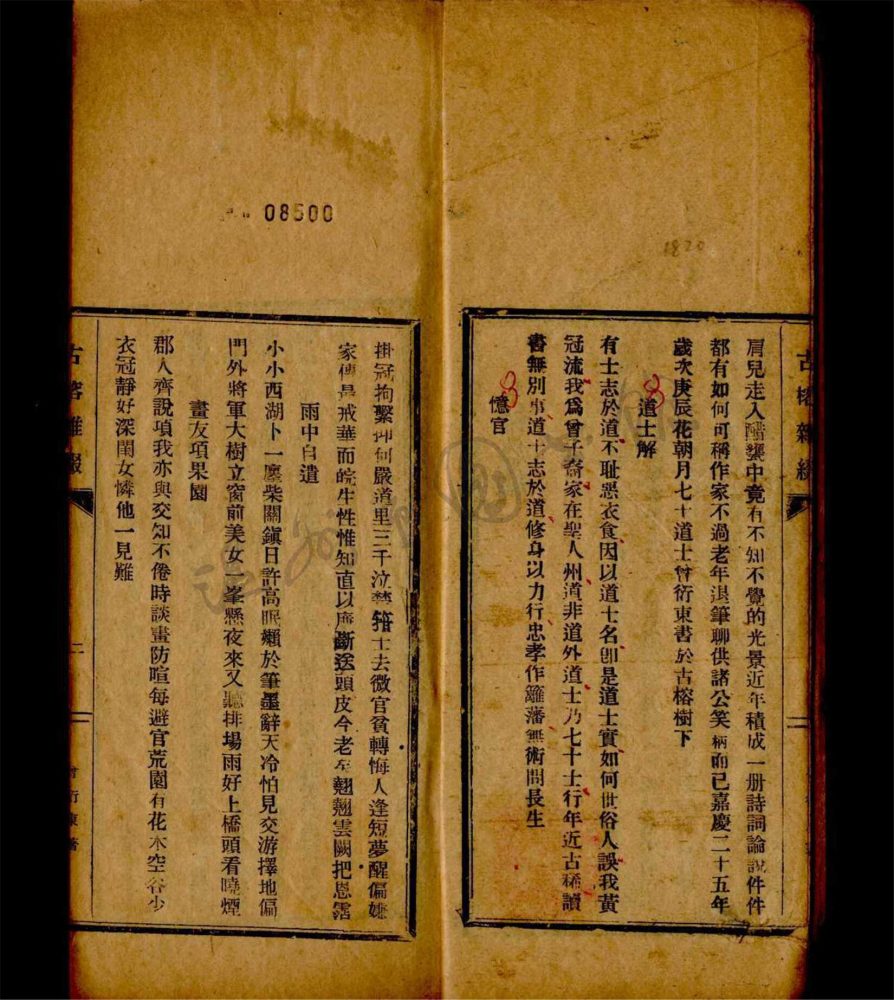 古榕雜綴
肩兒走入醋甕中竟有不知不覺的光景近年積成一册詩詞論說件件
都有如何可稱作家不過老年退筆聊供諸公笑柄而已嘉慶二十五年
歲次庚辰花朝月七十道士曾衍東書於古榕樹下
道士解
有士志於道不耻惡衣食因以道士名卽是道士實如何世俗人誤我黃
冠流我爲曾子裔家在聖人州道非道外道士乃七十士行年近古稀讀
書無別事道士志於道修身以力行忠孝作籬藩無術問長生
憶官
掛冠拘繫抑何嚴道里三千泣楚士去微官貧轉悔人逢短夢醒偏
家傳是戒華而皖生性惟知直以廉斷送頭皮今老至翹翹雲闕把恩露
雨中自遣
小小西湖卜一廛柴關鎮日許高眠嬾於筆墨辭天冷怕見交游擇地偏
門外將軍大樹立窗前美女一峯懸夜來又聽排場雨好上橋頭看曉煙
畫友項果園
郡人齊說項我亦與交知不倦時談畫防喧每避官荒園有花木空谷少
衣冠靜好深閨女憐他一見難
古榕雜綴
二
曾衍東著
08500
1820